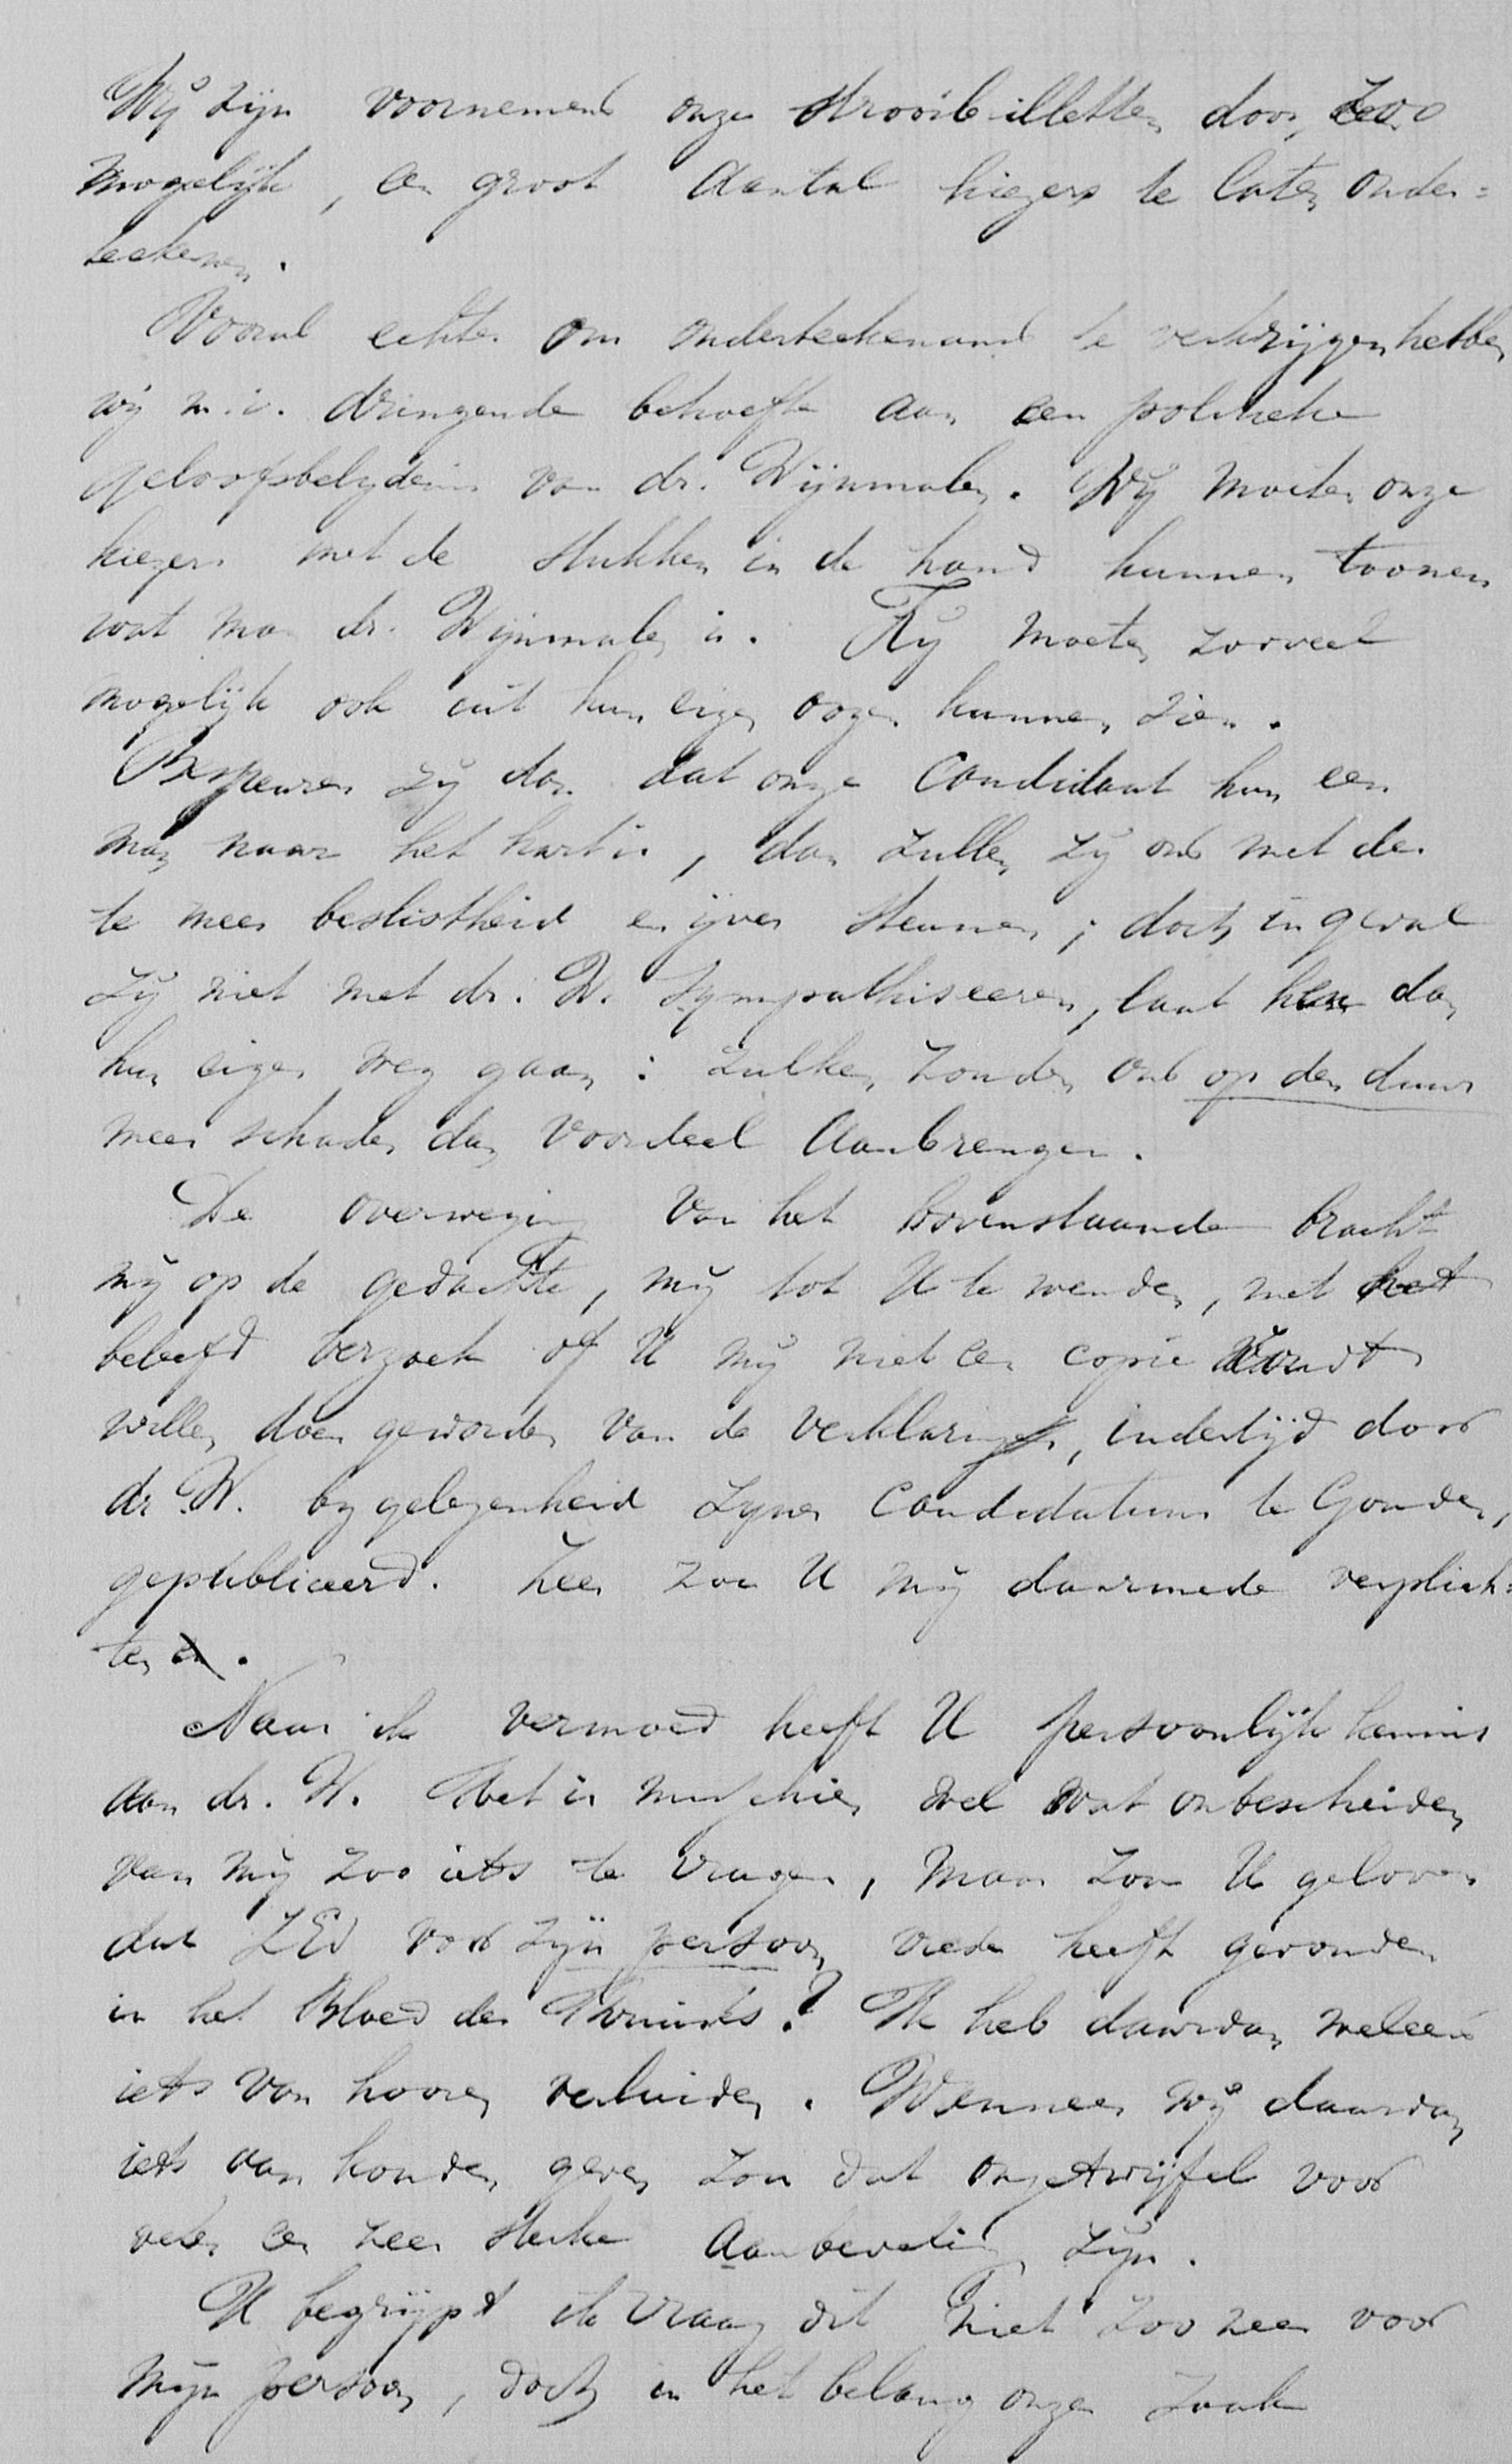 Wij zijn voornemens onze strooibilletten door, zoo
mogelijk, een groot aantal kiezers te laten onder=
teekenen.
Vooral echter om onderteekenaars te verkrijgen hebben
wij m.i. dringende behoefte aan een politieke
geloofsbelydenis van dr. Wijnmalen. Wij moeten onze
kiezers met de stukken in de hand kunnen toonen
wat man dr. Wijnmalen is. Zy moeten zooveel
mogelijk ook uit hun eigen oogen kunnen zien.
Bespeuren zy dan dat onze Candidaat hun een
man naar het hart is, dan zullen zy ons met des
te meer beslistheid en ijver steunen; doch in geval
zy niet met dr. W. sympathiseeren, laat hen dan
hun eigen weg gaan: zulken zouden ons op den duur
meer schade dan voordeel aanbrengen.
De overweging van het bovenstaande bracht
mij op de gedachte, mij tot U te wenden, met het
beleefd verzoek of U mij niet een copie zoudt
willen doen geworden van de verklaring, indertijd door
dr W. by gelegenheid zyner Candidatuur te Gouda,
gepubliceerd. Zeer zou U mij daarmede verplich=
ten.
Naar ik vermoed heeft U persoonlijk kennis
aan dr. W. Het is misschien wel wat onbescheiden
van mij zoo iets te vragen, maar zou U gelooven
dat ZEd voor zijn persoon vrede heeft gevonden
in het Bloed des Kruises? Ik heb daarvan weleens
iets van hooren verluiden. Wanneer wij daarvan
iets van konden geven zou dat ongetwijfel voor
velen een zeer sterke aanbeveling zyn.
U begrijpt ik vraag dit niet zoo zeer voor
mijn persoon, doch in het belang onzer zaak